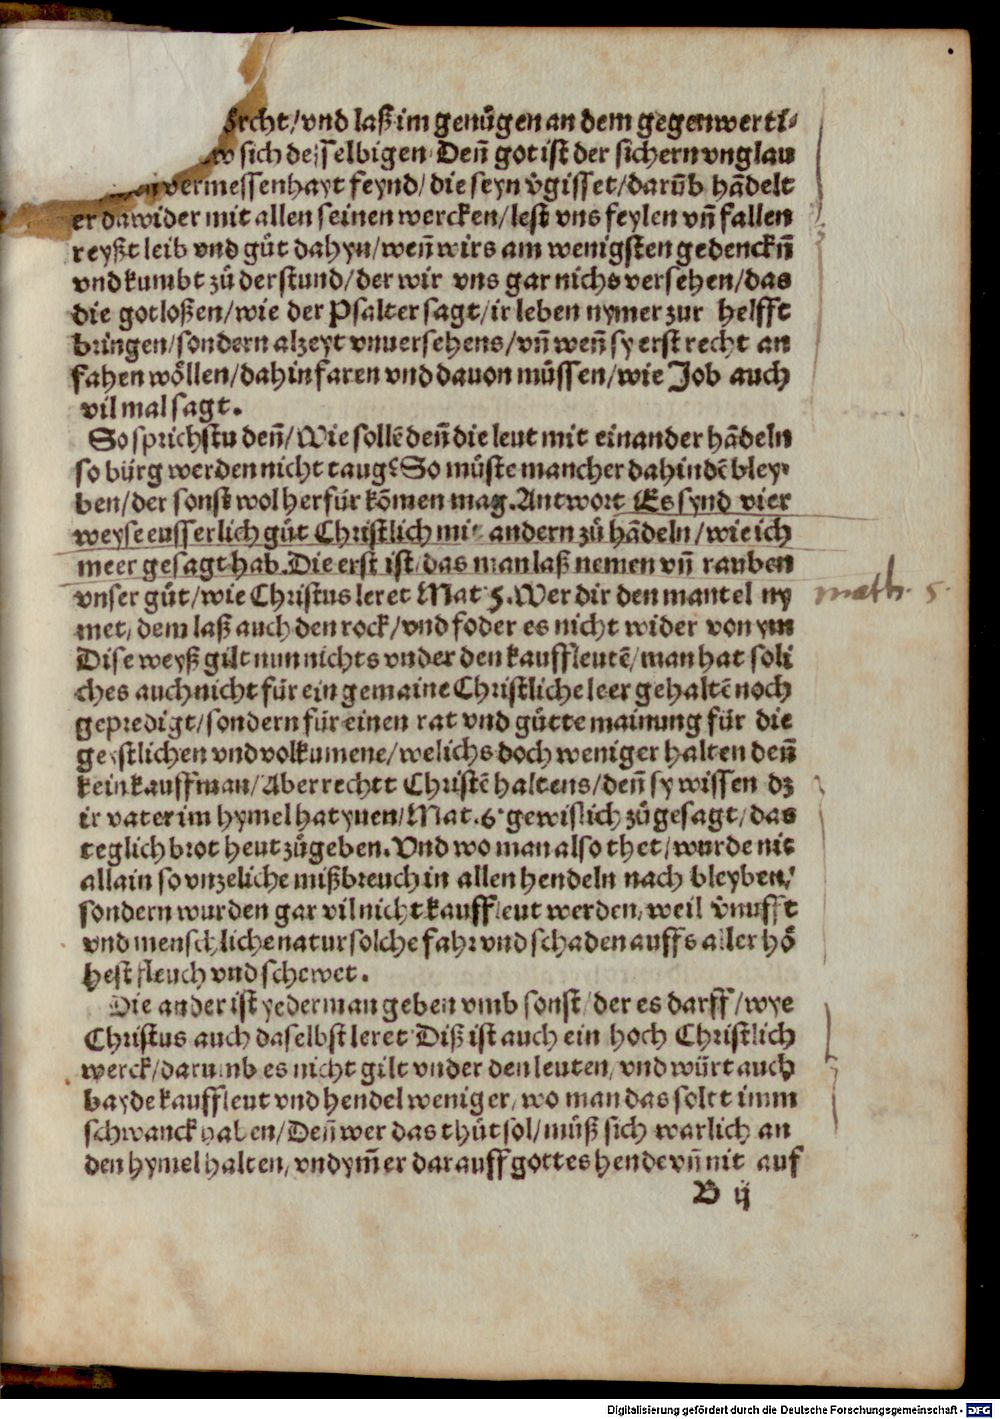 rcht/vnd laß im genuͤgen an dem gegenwerti⸗
sich desselbigen Den̄ got ist der sichern vnglau
vermessenhayt feynd/die seyn v̄gisset/darūb hādelt
er dawider mit allen seinen wercken/lest vns feylen vn̄ fallen
reyßt leib vnd guͤt dahyn/wen̄ wirs am wenigsten gedenckn̄
vnd kumbt zuͤ der stund/der wir vns gar nichs versehen/das
die gotloßen/wie der Psalter sagt/ir leben nymer zur helfft
bringen/sondern alzeyt vnuersehens/vn̄ wen̄ sy erst recht an
fahen woͤllen/dahin faren vnd dauon muͤssen/wie Job auch
vil mal sagt.
So sprichstu den̄/Wie sollē den̄ die leut mit einander hādeln
so buͤrg werden nicht taug? So muͤste mancher dahindē bley⸗
ben/der sonst wol herfuͤr kōmen mag. Antwort Es synd vier
weyse eusserlich guͤt Christlich mit andern zuͤ hādeln/wie ich
meer gesagt hab. Die erst ist/das man laß nemen vn̄ rauben
vnser guͤt/wie Christus leret Mat 5. Wer dir den mantel ny
met/dem laß auch den rock/vnd foder es nicht wider von ym
Dise weyß gilt nun nichts vnder den kauffleutē/man hat soli
ches auch nicht fuͤr ein gemaine Christliche leer gehaltē noch
gepredigt/sondern fuͤr einen rat vnd guͤtte mainung fuͤr die
geystlichen vnd volkumene/welichs doch weniger halten den̄
kein kauffman/Aber rechtt Christē haltens/den̄ sy wissen dz
ir vater im hymel hat ynen/Mat. 6 gewislich zuͤgesagt/das
teglich brot heut zuͤgeben. Vnd wo man also thet/wurde nit
allain so vnzeliche mißbreuch in allen hendeln nach bleyben/
sondern wurden gar vil nicht kauffleut werden/weil v̄nufft
vnd menschliche natur solche fahr vnd schaden auffs aller hoͤ
hest fleuch vnd schewet.
Die ander ist yederman geben vmb sonst/der es darff/wye
Christus auch daselbst leret Diß ist auch ein hoch Christlich
werck/darumb es nicht gilt vnder den leuten/vnd wuͤrt auch
bayde kauffleut vnd hendel weniger/wo man das soltt imm
schwanck haben/Den̄ wer das thuͤt sol/muͤß sich warlich an
den hymel halten/vnd ym̄er darauff gottes hende vn̄ nit auf
B ij
math. 5.
Digitalisierung gefördert durch die Deutsche Forschungsgemeinschaft - DFG